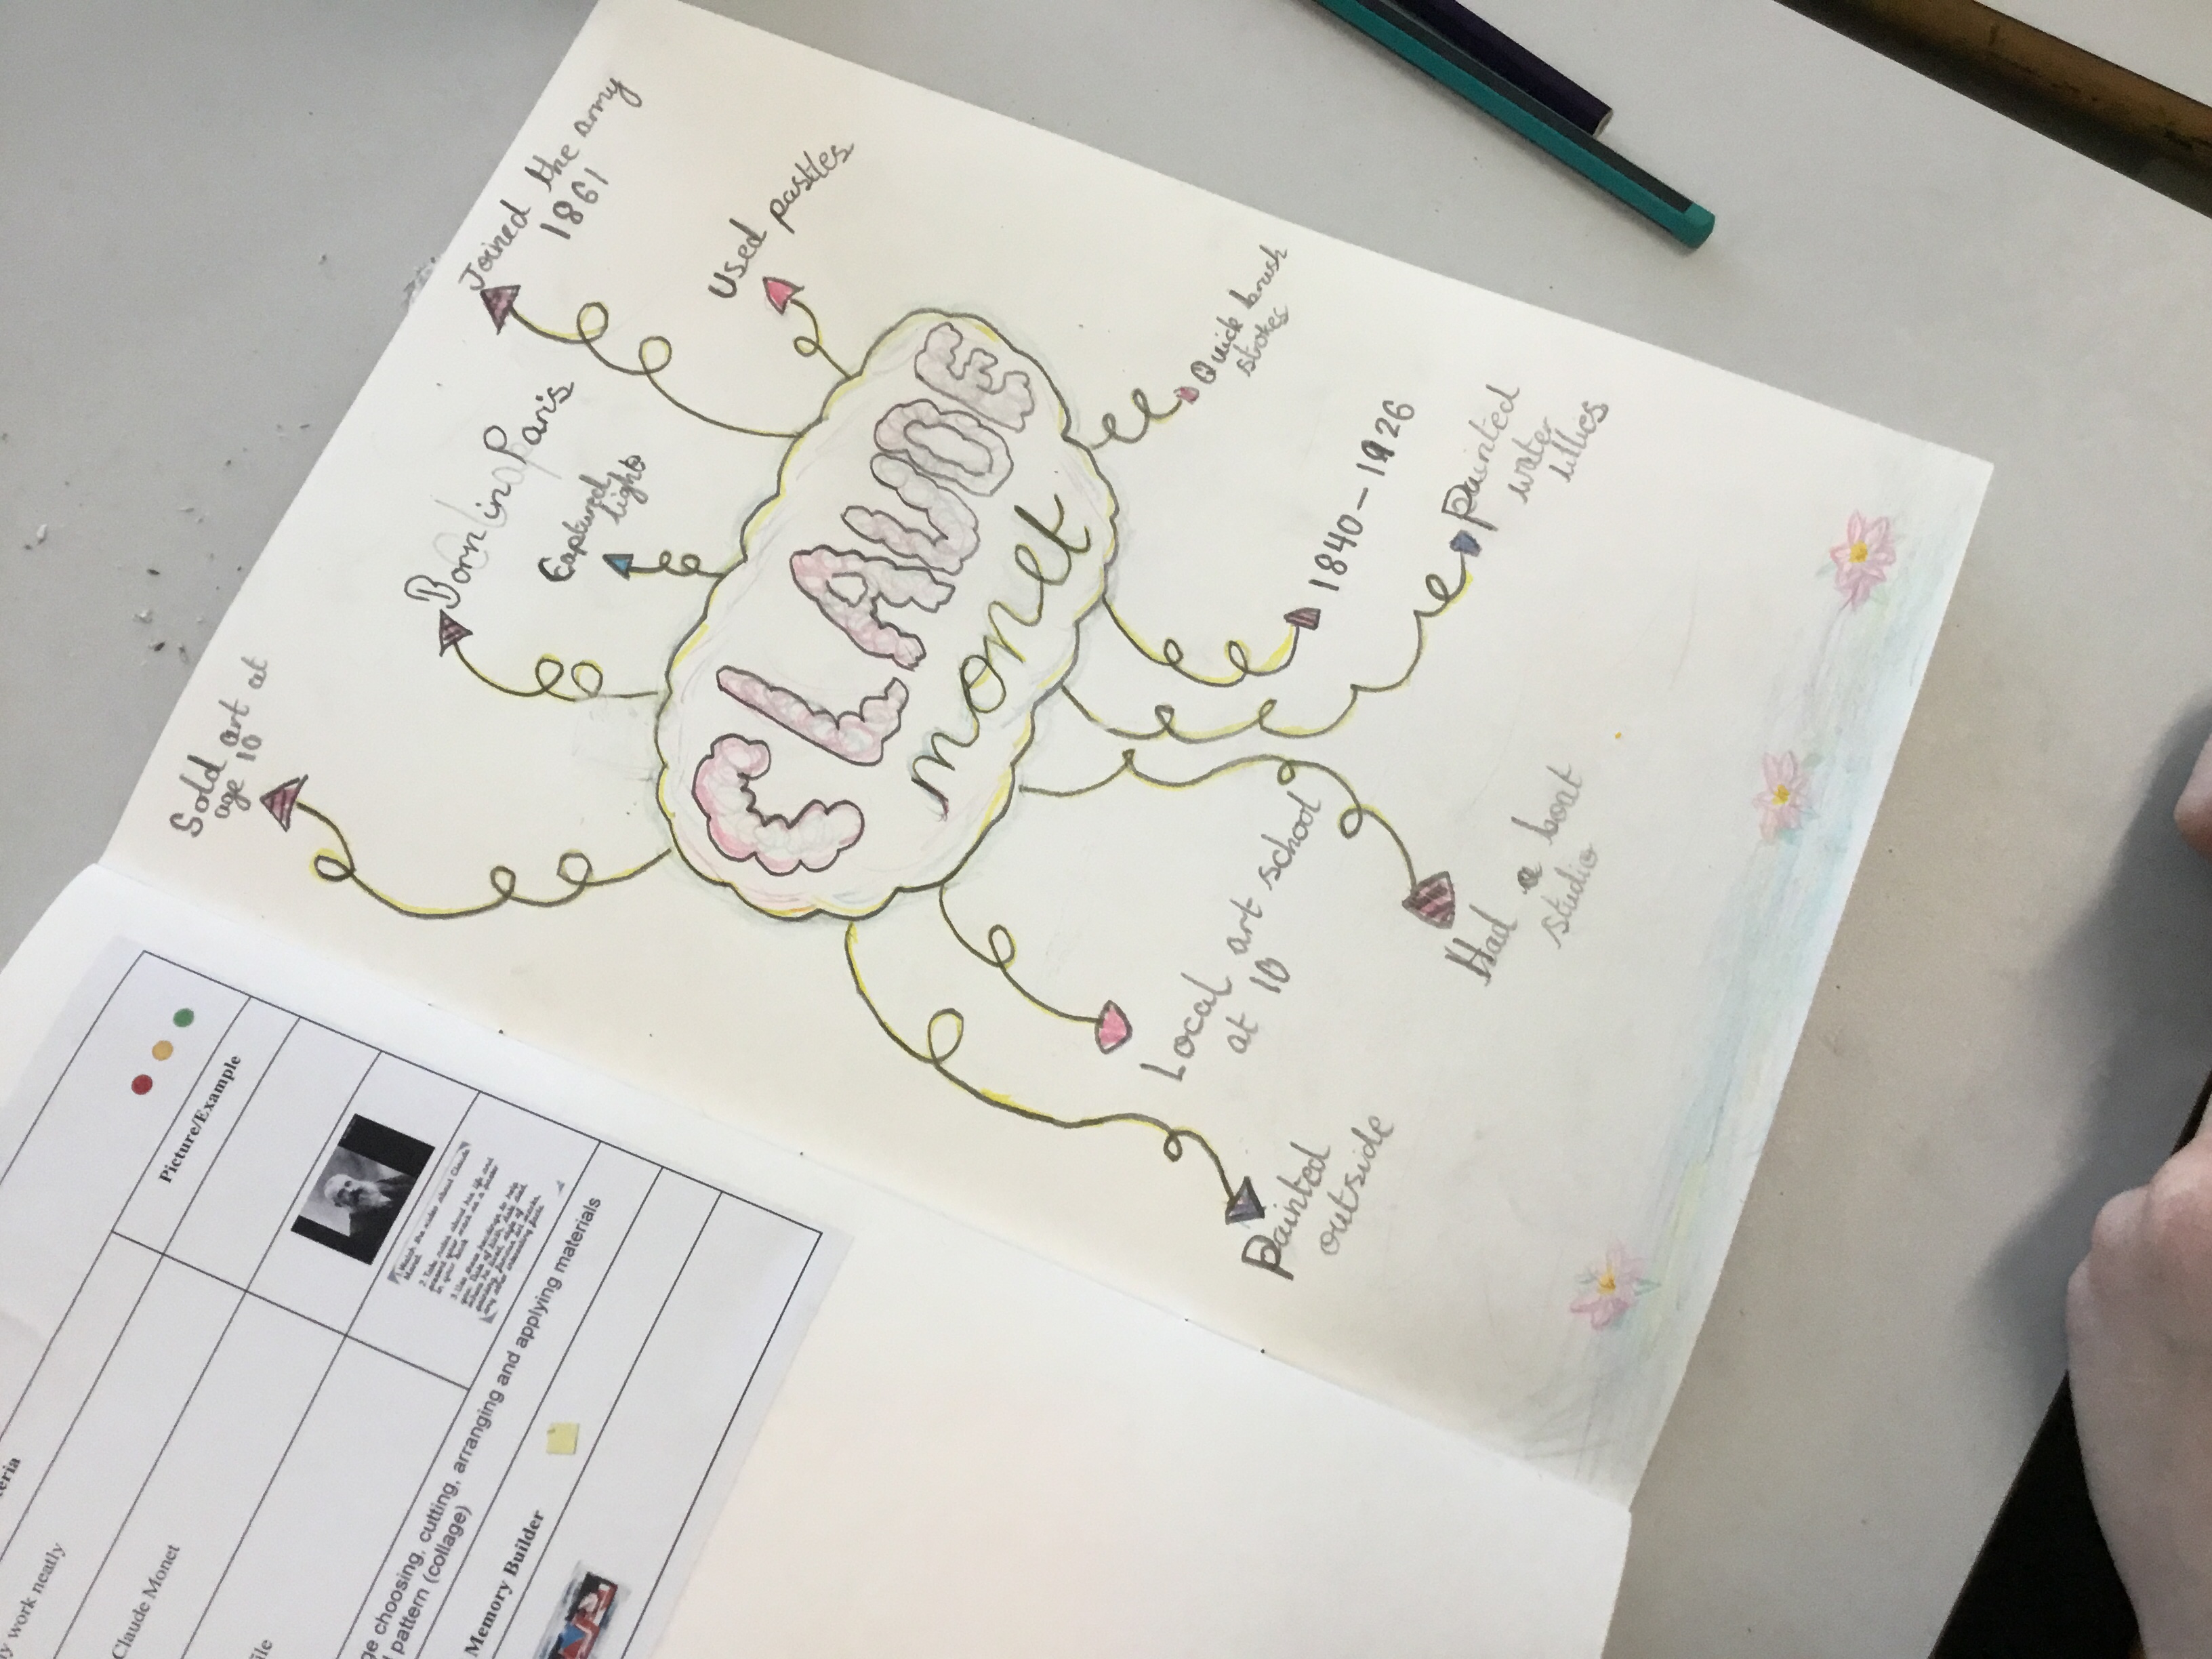 CLAUDE
monet
Joined the army
1861
Used pastles
Quick brush
stokes
1840-1926
Painted
water
lillies
Had a boat
studio
Local art school
at 10
Painted
outside
Sold art at
age 10
Born in Paris
Captured
light
Picture/Example
work neatly
Claude Monet
choosing, cutting, arranging and applying materials
pattern (collage)
Memory Builder